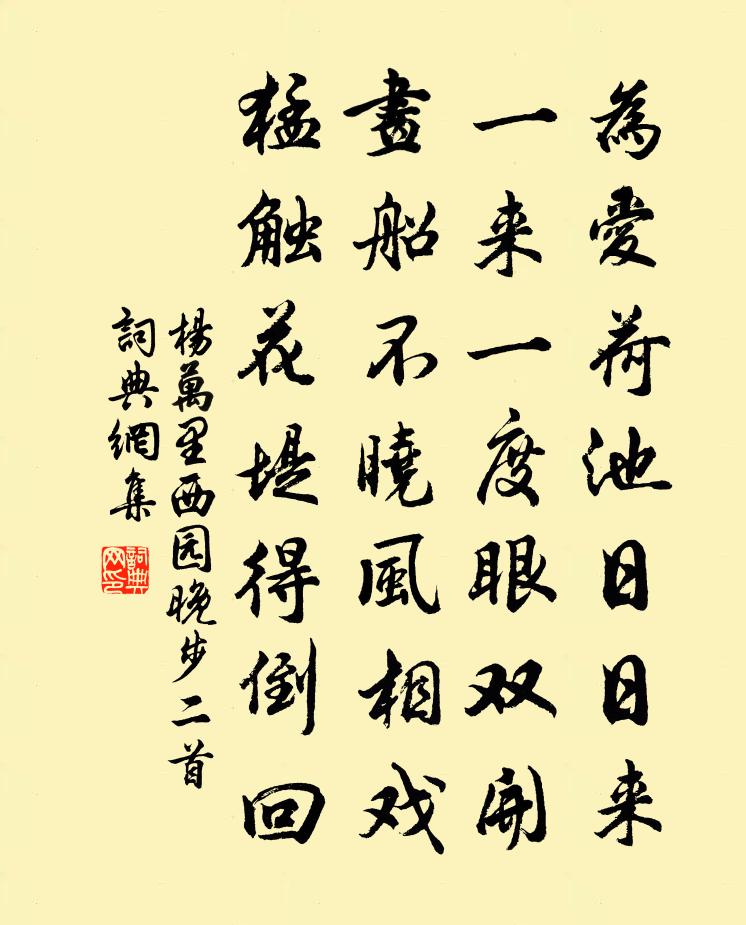 為愛荷池日日来
一来一度眼双開
畫船不曉風相戏
猛触花堤得倒回
楊萬里西园晚步二首
詞典網集
詞典
网印